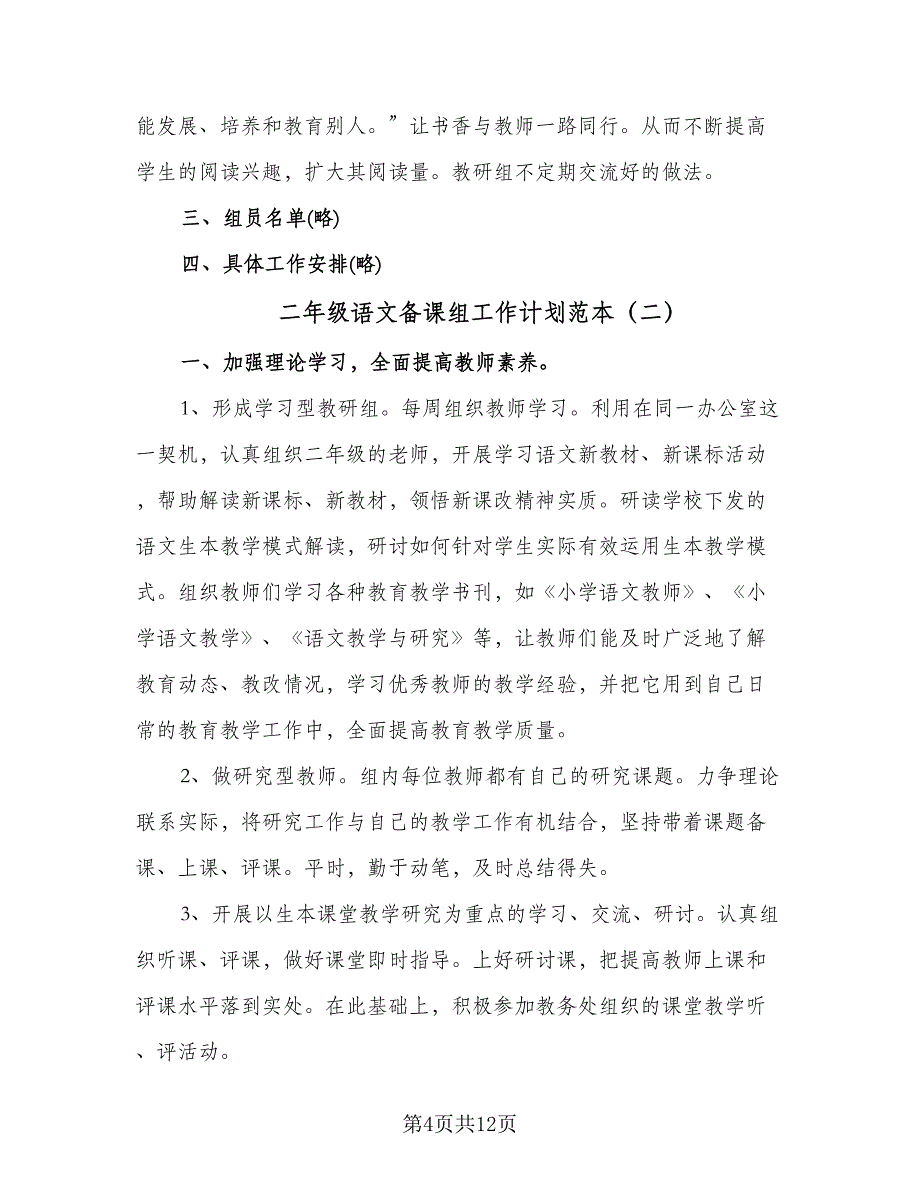 能发展、培养和教育别人。”让书香与教师一路同行。从而不断提高
学生的阅读兴趣，扩大其阅读量。教研组不定期交流好的做法。
三、组员名单(略)
四、具体工作安排(略)
二年级语文备课组工作计划范本（二）
一、加强理论学习，全面提高教师素养。
1、形成学习型教研组。每周组织教师学习。利用在同一办公室这
一契机，认真组织二年级的老师，开展学习语文新教材、新课标活动
，帮助解读新课标、新教材，领悟新课改精神实质。研读学校下发的
语文生本教学模式解读，研讨如何针对学生实际有效运用生本教学模
式。组织教师们学习各种教育教学书刊，如《小学语文教师》、《小
学语文教学》、《语文教学与研究》等，让教师们能及时广泛地了解
教育动态、教改情况，学习优秀教师的教学经验，并把它用到自己日
常的教育教学工作中，全面提高教育教学质量。
2、做研究型教师。组内每位教师都有自己的研究课题。力争理论
联系实际，将研究工作与自己的教学工作有机结合，坚持带着课题备
课、上课、评课。平时，勤于动笔，及时总结得失。
3、开展以生本课堂教学研究为重点的学习、交流、研讨。认真组
织听课、评课，做好课堂即时指导。上好研讨课，把提高教师上课和
评课水平落到实处。在此基础上，积极参加教务处组织的课堂教学听
、评活动。
第4页共12页